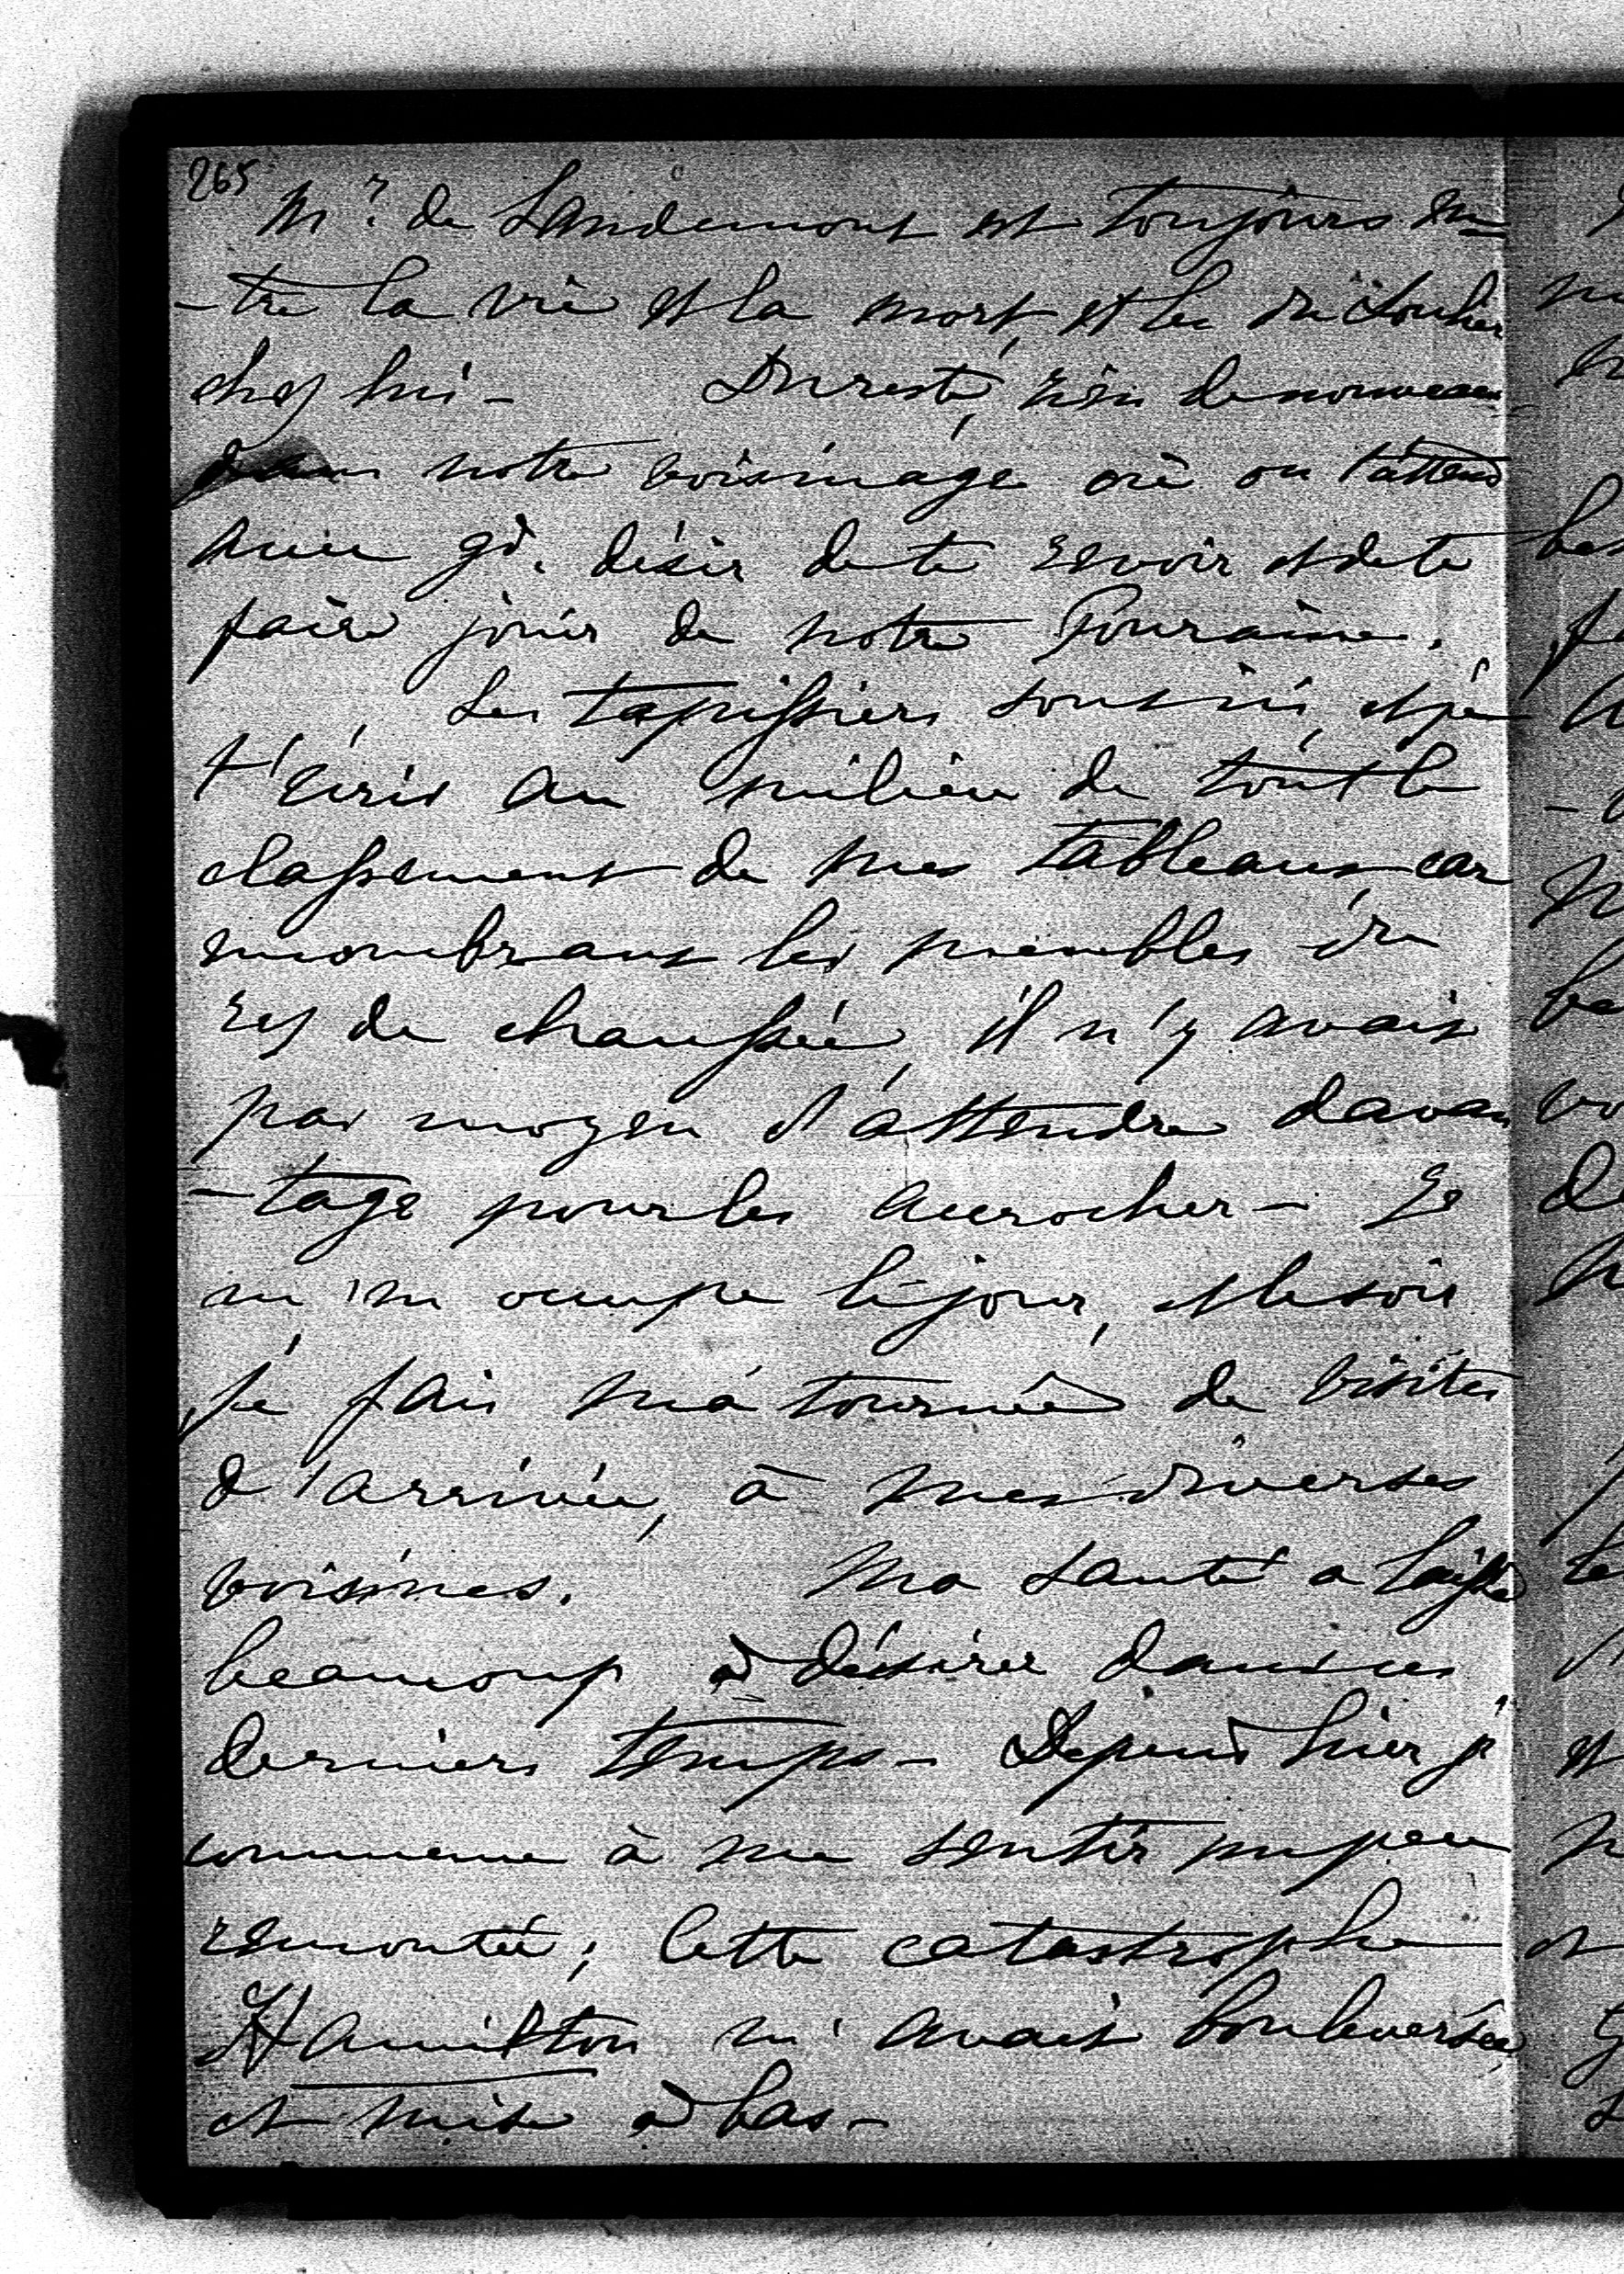 265
Mr. de Landemont est toujours en
-tre la vie et la mort, et les
chez lui - Du reste, rien de nouveau
dans notre voisinage où on t'attend
avec gd. désir de te revoir et de te
faire jouir de notre Touraine.
Les tapissiers sont ici, et je
t'écris au milieu de tout le
classement de mes tableaux, car
encombrant les meubles du
rez de chaussée, il n'y avait
pas moyen d'attendre davan
-tage pour les accrocher - Je
m'en occupe le jour, et le soir
je fais ma tournée de visites
d'arrivée, à mes diverses
voisines. Ma santé a laissé
beaucoup à désirer dans ces
derniers temps - Depuis hier je
commence à me sentir un peu
remontée; cette catastrophe
Hamilton m'avait bouleversée,
et mise à bas -